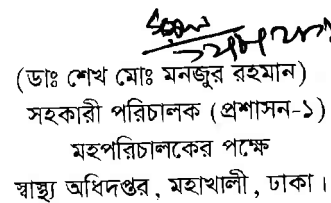 (ডাঃ শেখ মোঃ মনজুর রহমান)
সহকারী পরিচালক (প্রশাসন-১)
মহপরিচালকের পক্ষে
স্বাস্থ্য অধিদপ্তর, মহাখালী, ঢাকা।